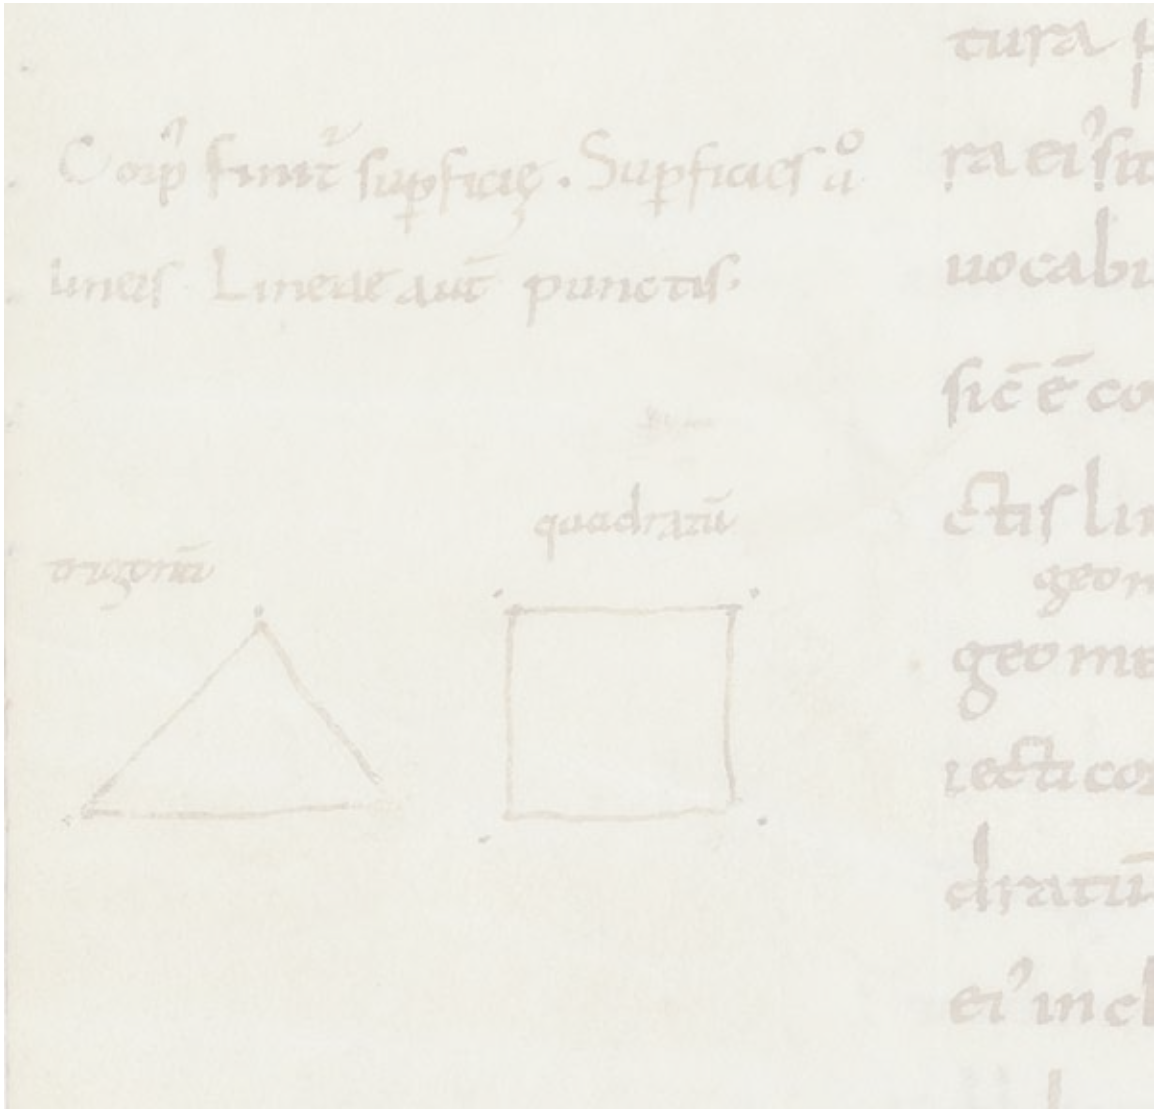 Corp᾽ finit᷑ sup̱ficię. Sup̱ficies ů
lineis Lineae aut̄ punctis.
quadratū
trigonū
tura
ra ei᾽ sit
uocabu
sic̄ ē co
ctis lin
geom
geome
iecti cor
dratū
ei᾽ incl